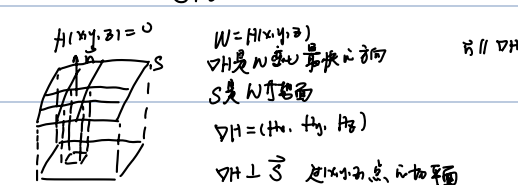 H(x,y,z)=0
n
S
W=H(x,y,z)
∇H是W变化最快的方向
n⃗ // ∇H
S是W等超面
∇H=(Hx, Hy, Hz)
∇H⊥S⃗ 过(x,y,z)点的切平面